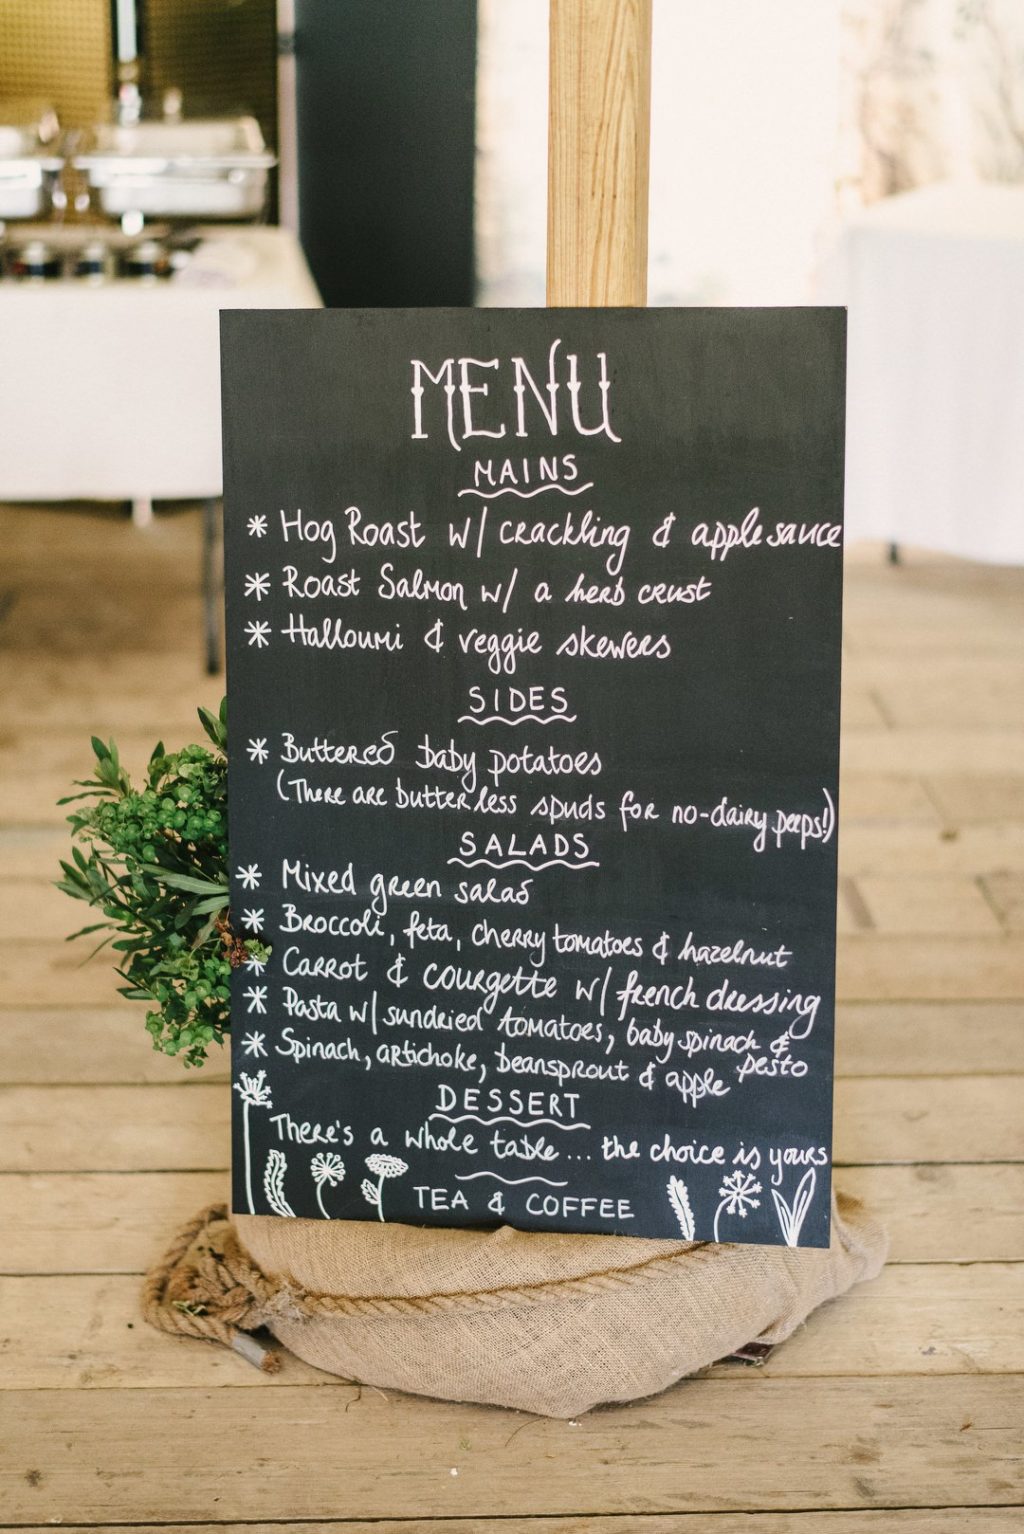 MENU
MAINS
* Hog Roast w/ crackling & apple sauce
* Roast Salmon w/ a herb crust
* Halloumi & veggie skewers
SIDES
* Buttered baby potatoes
(There are butter less spuds for no-dairy peeps!)
SALADS
* Mixed green salad
* Broccoli, feta, cherry tomatoes & hazelnut
* Carrot & courgette w/ french dressing
* Pasta w/ sundried tomatoes, baby spinach &
pesto
* Spinach, artichoke, beansprout & apple
DESSERT
There's a whole table... the choice is yours
TEA & COFFEE